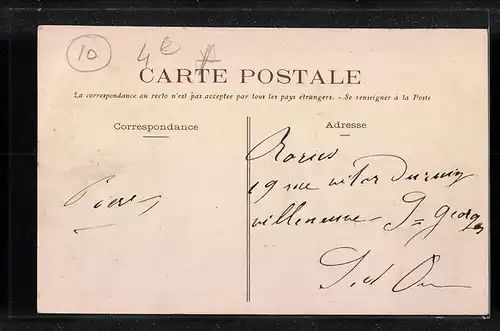 10
4e
CARTE POSTALE
La correspondance au recto n'est pas acceptée par tous les pays étrangers. - Se renseigner à la Poste
Correspondance
Adresse
19 rue
villeneuve St Georges
S et O